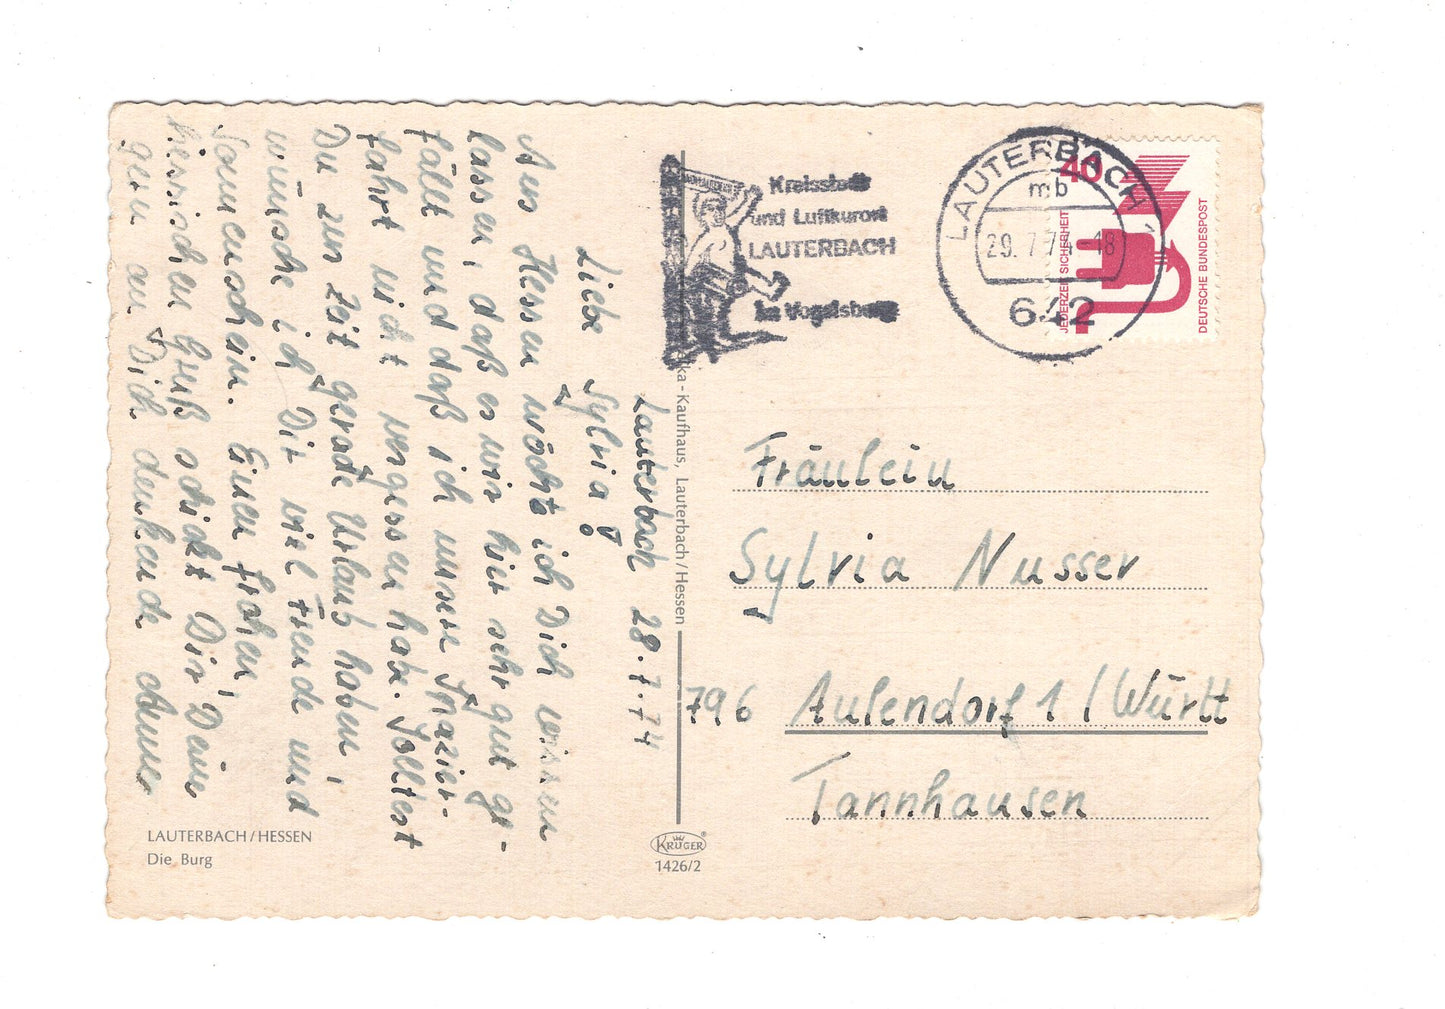 Lauterbach 28.7.74
Liebe Sylvia!
Aus Hessen möchte ich Dich wissen
lassen, daß es mir hier sehr gut ge-
fällt und daß ich unsere Spazier-
fahrt nicht vergessen habe. Solltest
Du zur Zeit gerade Urlaub haben,
wünsche ich Dir viel Freude und
Sonnenschein. Einen frohen,
hessischen Gruß schickt Dir Deine
gern an Dich denkende Anne
LAUTERBACH/HESSEN
Die Burg
ka-Kaufhaus, Lauterbach/Hessen
KRÜGER®
1426/2
Kreisstadt
und Luftkurort
LAUTERBACH
im Vogelsberg
LAUTERBACH
mb
29.7.74-18
642
40
JEDERZEIT SICHERHEIT
DEUTSCHE BUNDESPOST
Fräulein
Sylvia Nusser
796 Aulendorf 1 / Württ
Tannhausen